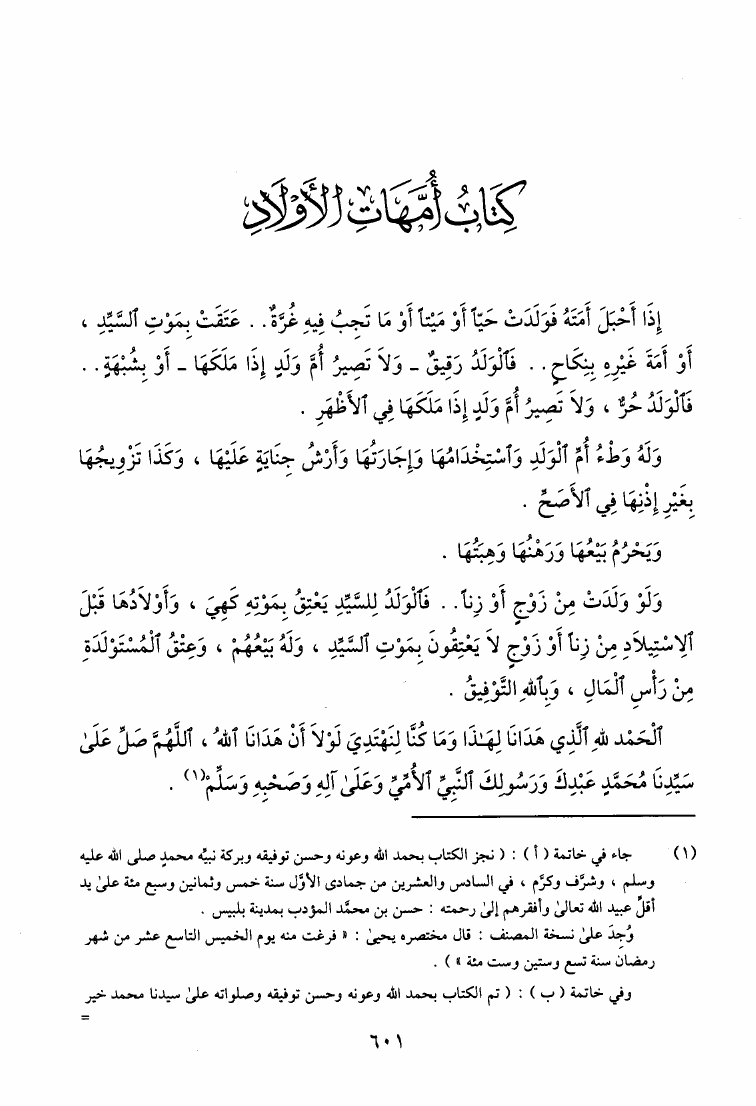 كِتَابُ أُمَّهَاتِ الْأَوْلَادِ
إِذَا أَحْبَلَ أَمَتَهُ فَوَلَدَتْ حَيّاً أَوْ مَيْتاً أَوْ مَا تَجِبُ فِيهِ غُرَّةٌ .. عَتَقَتْ بِمَوْتِ ٱلسَّيِّدِ ،
أَوْ أَمَةَ غَيْرِهِ بِنِكَاحٍ .. فَٱلْوَلَدُ رَقِيقٌ - وَلاَ تَصِيرُ أُمَّ وَلَدٍ إِذَا مَلَكَهَا - أَوْ بِشُبْهَةٍ ..
فَٱلْوَلَدُ حُرٌّ ، وَلاَ تَصِيرُ أُمَّ وَلَدٍ إِذَا مَلَكَهَا فِي ٱلأَظْهَرِ .
وَلَهُ وَطْءُ أُمِّ ٱلْوَلَدِ وَٱسْتِخْدَامُهَا وَإِجَارَتُهَا وَأَرْشُ جِنَايَةٍ عَلَيْهَا ، وَكَذَا تَزْوِيجُهَا
بِغَيْرِ إِذْنِهَا فِي ٱلأَصَحِّ .
وَيَحْرُمُ بَيْعُهَا وَرَهْنُهَا وَهِبَتُهَا .
وَلَوْ وَلَدَتْ مِنْ زَوْجٍ أَوْ زِناً .. فَٱلْوَلَدُ لِلسَّيِّدِ يَعْتِقُ بِمَوْتِهِ كَهِيَ ، وَأَوْلاَدُهَا قَبْلَ
ٱلِاسْتِيلاَدِ مِنْ زِناً أَوْ زَوْجٍ لاَ يَعْتِقُونَ بِمَوْتِ ٱلسَّيِّدِ ، وَلَهُ بَيْعُهُمْ ، وَعِتْقُ ٱلْمُسْتَوْلَدَةِ
مِنْ رَأْسِ ٱلْمَالِ ، وَبِٱللهِ التَّوْفِيقُ .
ٱلْحَمْدُ للهِ ٱلَّذِي هَدَانَا لِهَـٰذَا وَمَا كُنَّا لِنَهْتَدِيَ لَوْلاَ أَنْ هَدَانَا ٱللهُ ، اللَّهُمَّ صَلِّ عَلَىٰ
سَيِّدِنَا مُحَمَّدٍ عَبْدِكَ وَرَسُولِكَ ٱلنَّبِيِّ ٱلأُمِّيِّ وَعَلَىٰ آلِهِ وَصَحْبِهِ وَسَلِّمْ(١) .
(١) جاء في خاتمة ( أ ) : ( نجز الكتاب بحمد الله وعونه وحسن توفيقه وبركة نبيِّه محمدٍ صلى الله عليه
وسلم ، وشرَّف وكرَّم ، في السادس والعشرين من جمادى الأوَّل سنة خمس وثمانين وسبع مئة علىٰ يد
أقلِّ عبيد الله تعالىٰ وأفقرهم إلىٰ رحمته : حسن بن محمَّد المؤدب بمدينة بلبيس .
وُجِدَ علىٰ نسخة المصنف : قال مختصره يحيىٰ : « فرغت منه يوم الخميس التاسع عشر من شهر
رمضان سنة تسع وستين وست مئة » ) .
وفي خاتمة ( ب ) : ( تم الكتاب بحمد الله وعونه وحسن توفيقه وصلواته علىٰ سيدنا محمد خير
=
٦٠١